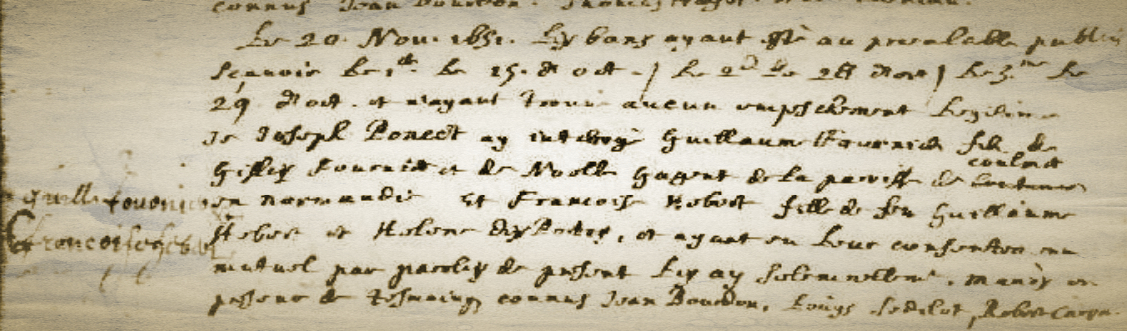 connus Jean Bourdon.
Le 20. Nov. 1651. Les bans ayant esté au prealable publiés
scauoir le 1er. le 15. d'oct. le 2d le 28 dud. le 3.me le
29 d'oct. et n'ayant trouué aucun empeschement legitime
Je Joseph Poncet ay interrogé Guillaume Fournier fils de
Gilles Fournier et de Noelle Gagent de la paroisse de coulmer
en normandie et Francoise Hebert fille de feu Guillaume
Guille fournier
francoise hebert
Hebert et Helene des Portes, et ayant eu leur consentemen
mutuel par paroles de present les ay solemnellemt. mariés en
presence de tesmoings connus Jean Bourdon, Louys Sedilot, Robert Caron.